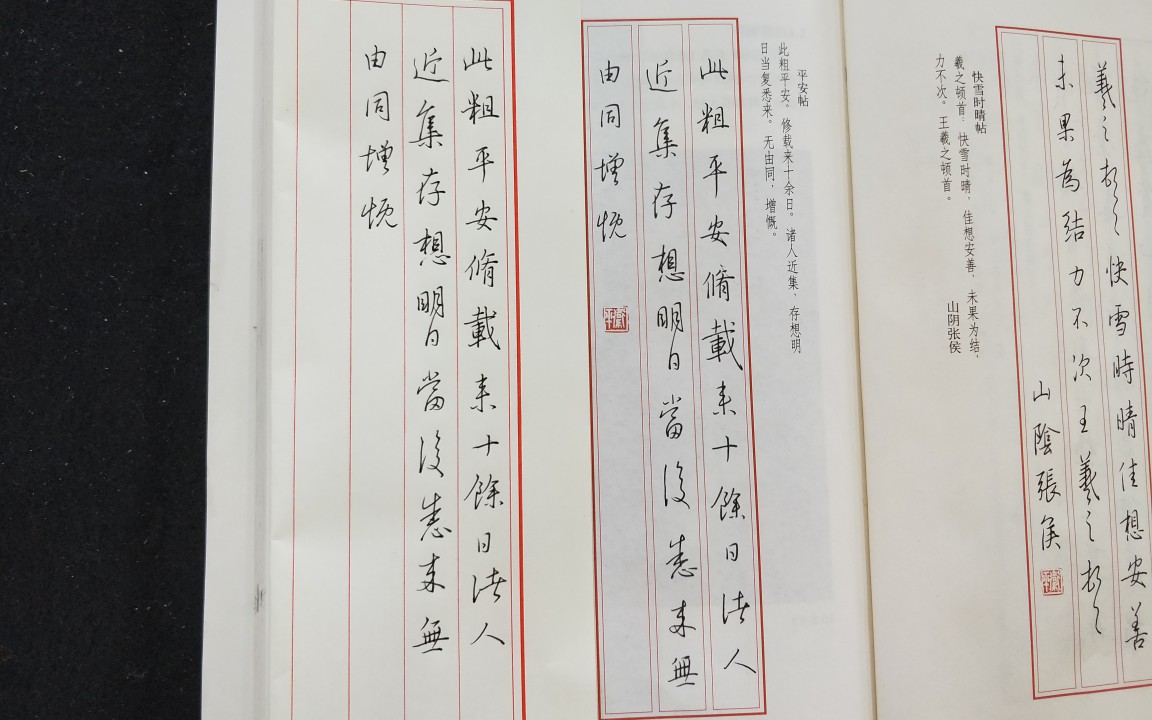 羲之顿首快雪時晴佳想安善
未果為結力不次王羲之顿首
山陰張侯
快雪时晴帖
羲之顿首：快雪时晴，佳想安善，未果为结，
力不次。王羲之顿首。
山阴张侯
平安帖
此粗平安。修载来十余日。诸人近集，存想明
日当复悉来。无由同，增慨。
此粗平安脩載来十餘日诸人
近集存想明日當復悉来無
由同增慨
此粗平安脩載来十餘日诸人
近集存想明日當復悉来無
由同增慨